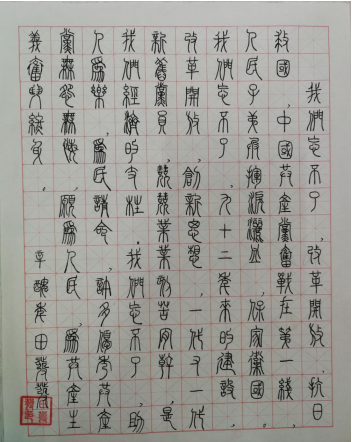 我們忘不了，改革開放，抗日
救國，中國共產黨奮戰在第一綫，
人民子弟兵揮淚灑血，保家衛國。
我們忘不了，九十二年來的建設，
改革開放，創新思想，一代又一代，
新舊黨員，兢兢業業刻苦實幹，是
我們經濟的支柱。我們忘不了，助
人爲樂，爲民請命，許多優秀共產
黨無怨無悔，願爲人民，爲共產主
義奮鬥終身。辛醜年田